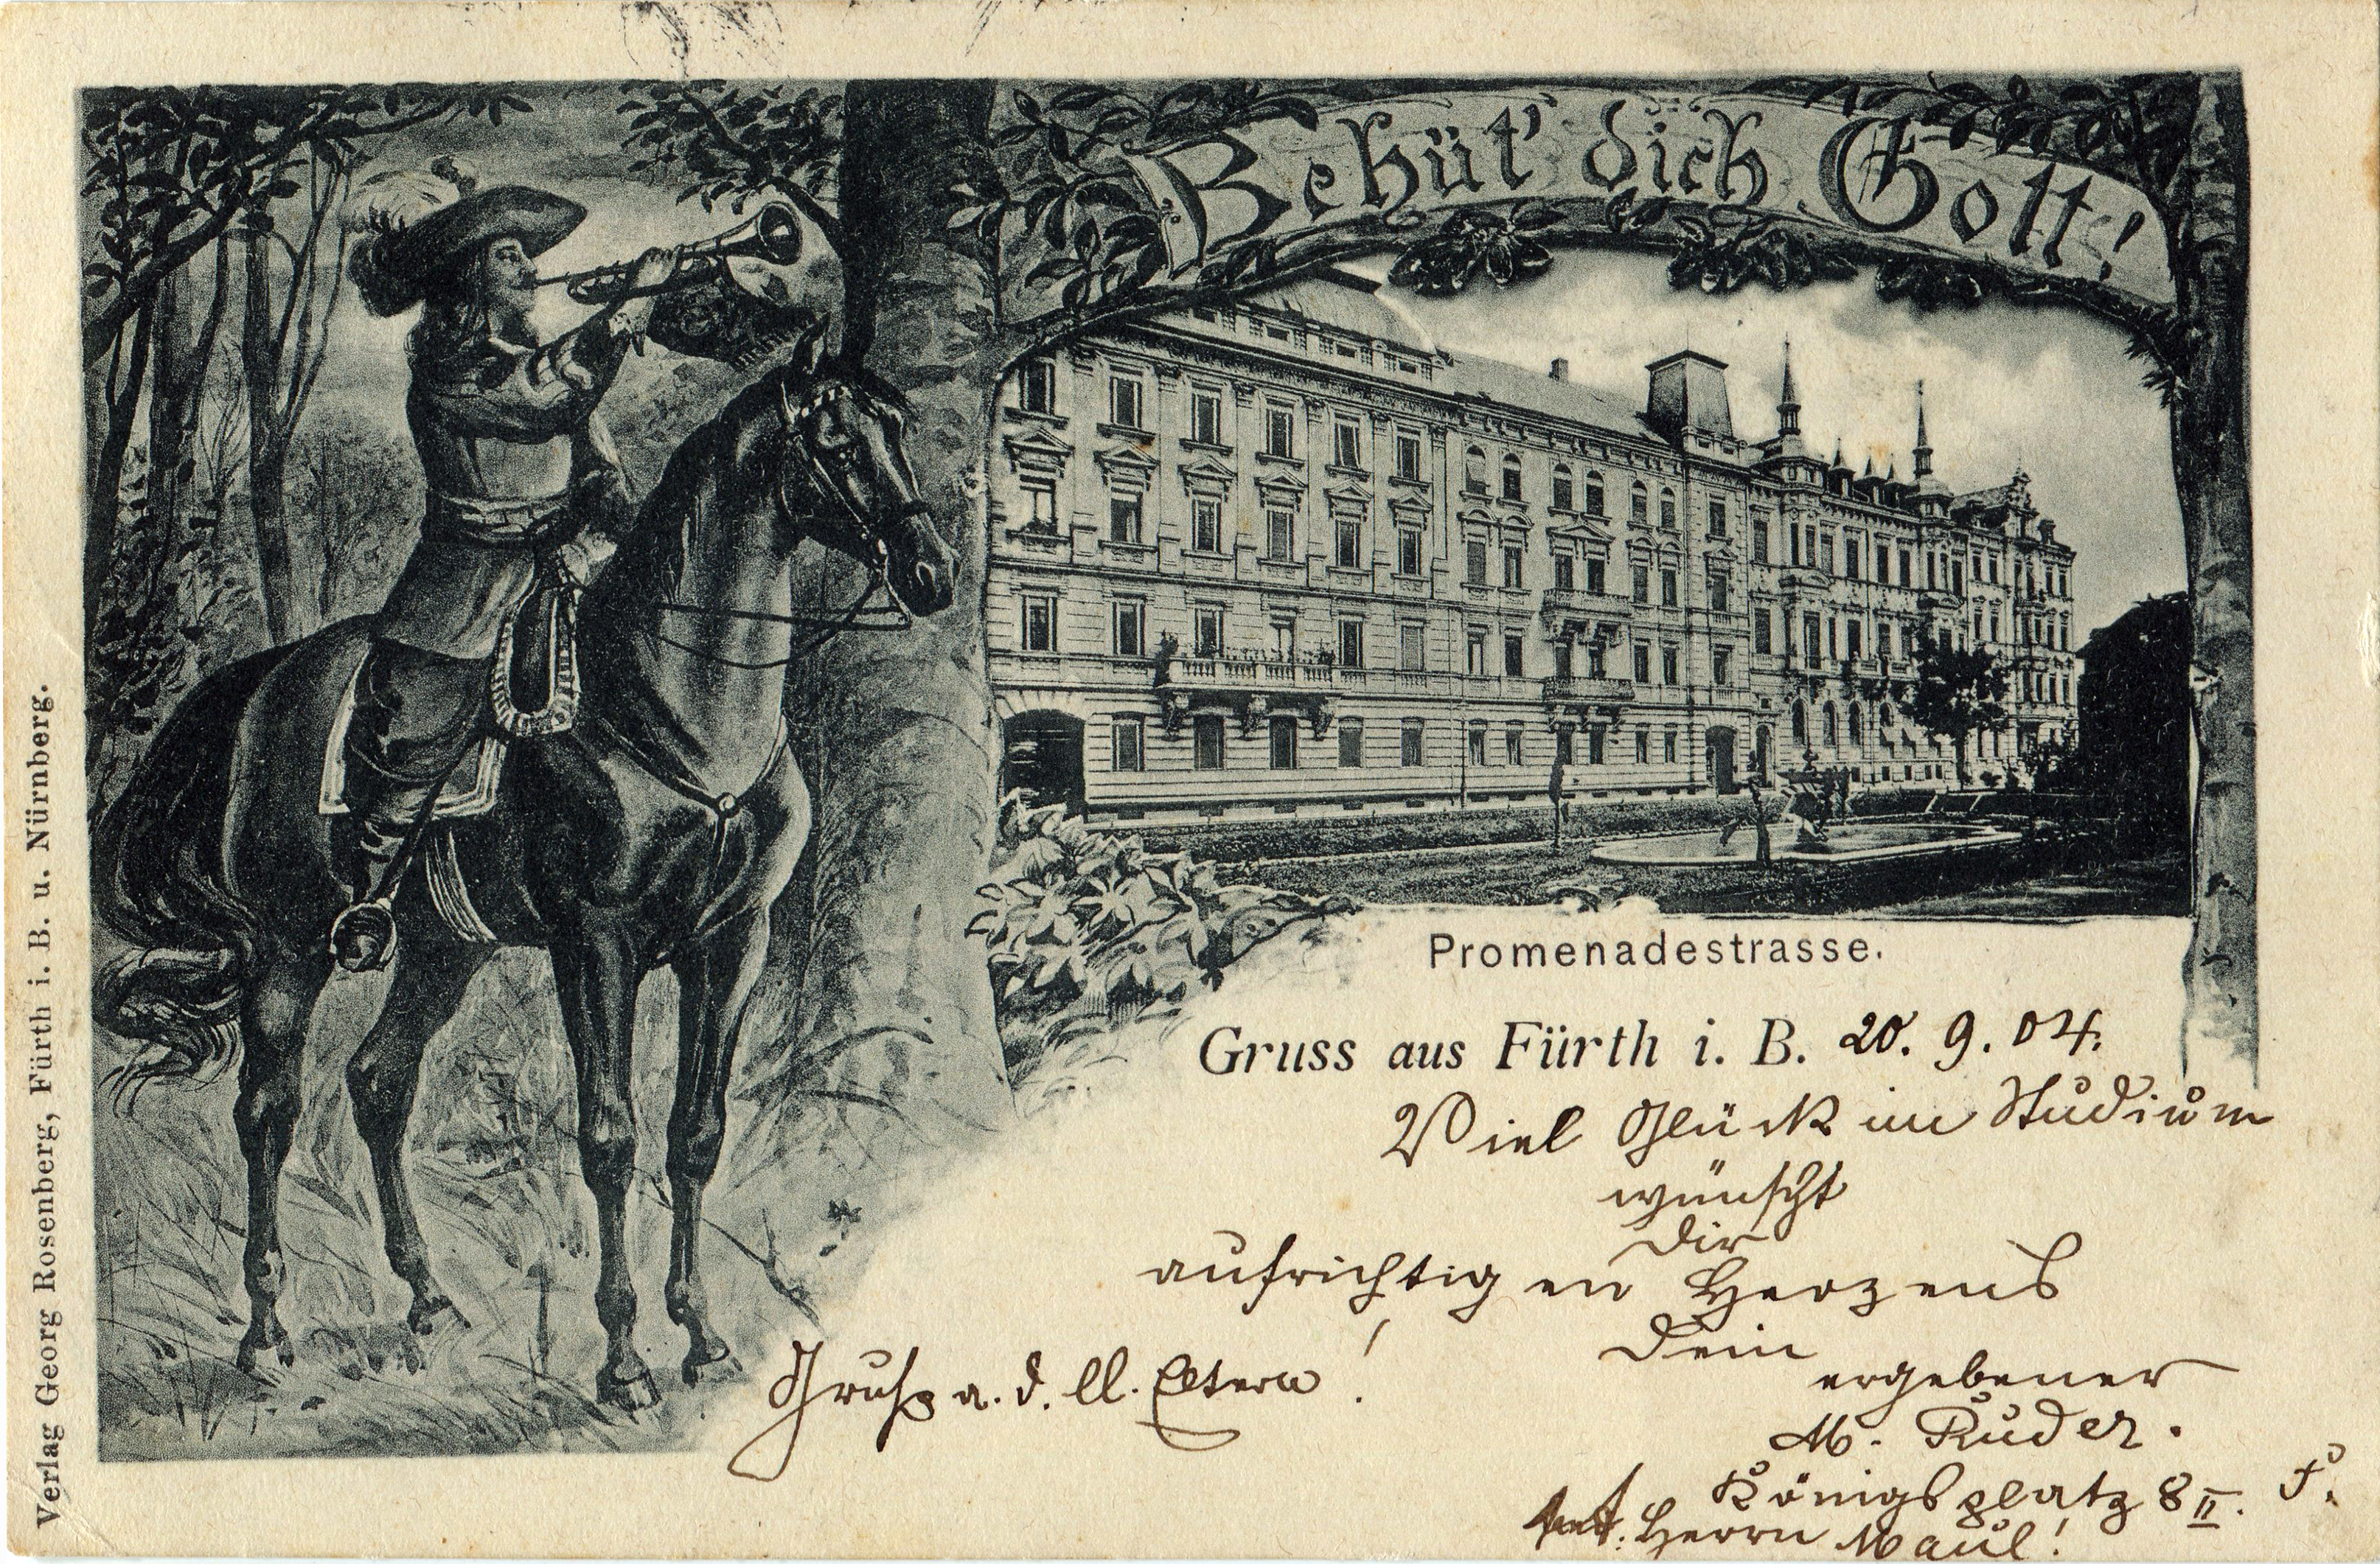 Behüt' dich Gott!
Promenadestrasse.
Gruss aus Fürth i. B. 20. 9. 04.
Viel Glück im Studium
wünscht
Dir
aufrichtigen Herzens
Dein
ergebener
M. Ruder.
Königsplatz 8 II. F.
Herrn Maul!
Gruß a. d. ll. Eltern!
Verlag Georg Rosenberg, Fürth i. B. u. Nürnberg.